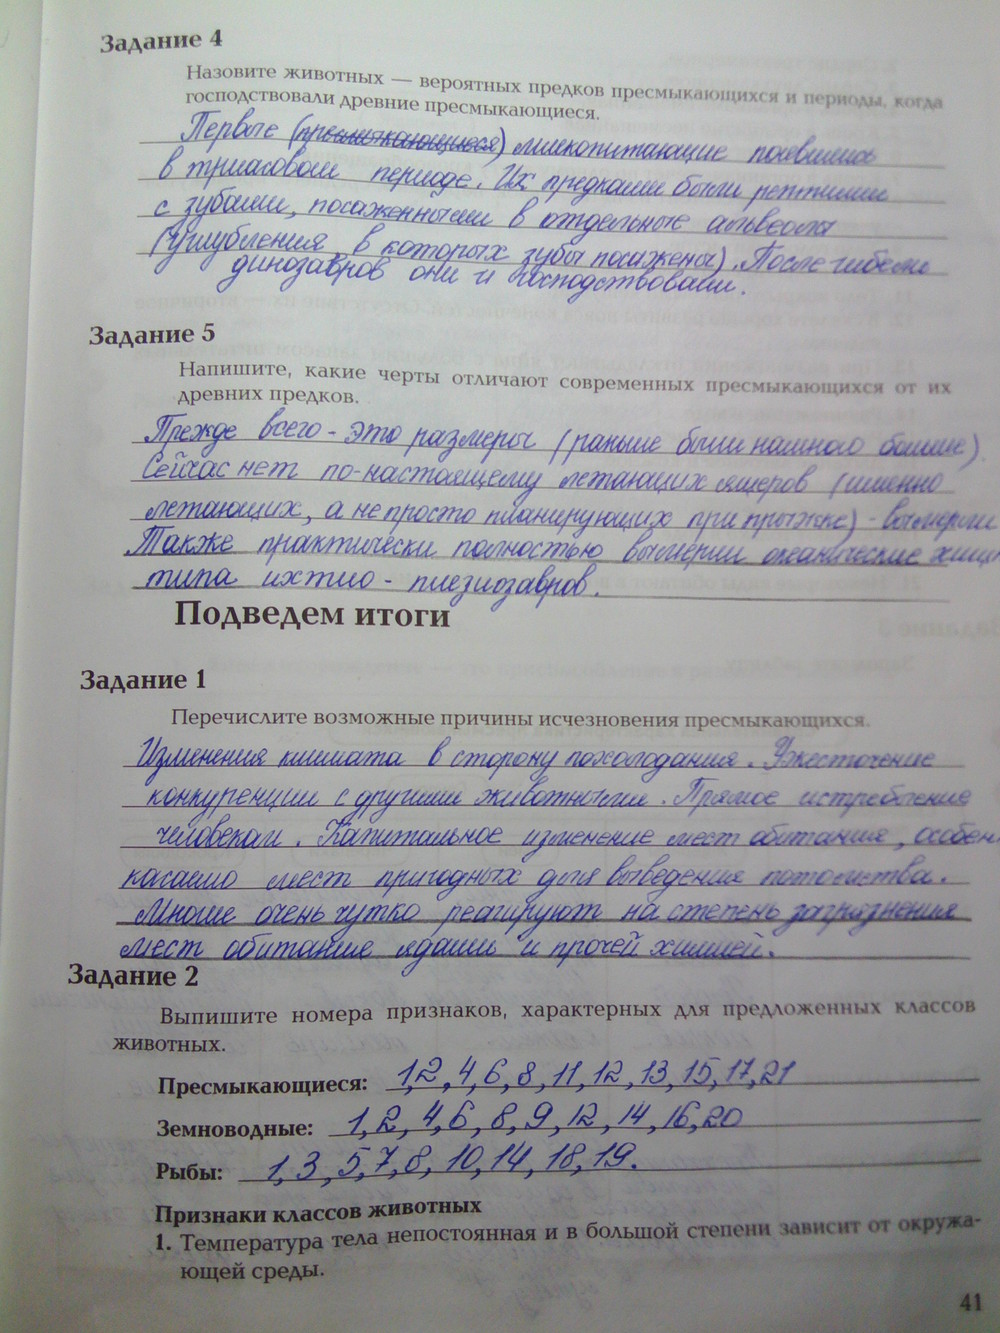 Задание 4
Назовите животных — вероятных предков пресмыкающихся и периоды, когда
господствовали древние пресмыкающиеся.
Первые (пресмыкающиеся) млекопитающие появились
в триасовом периоде. Их предками были рептилии
с зубами, посаженными в отдельные альвеолы
(углубления, в которых зубы посажены). После гибели
динозавров они и господствовали.
Задание 5
Напишите, какие черты отличают современных пресмыкающихся от их
древних предков.
Прежде всего - это размеры (раньше были намного больше).
Сейчас нет по-настоящему летающих ящеров (именно
летающих, а не просто планирующих при прыжке) - вымерли
Также практически полностью вымерли океанические хищ
типа ихтио - плезиозавров.
Подведем итоги
Задание 1
Перечислите возможные причины исчезновения пресмыкающихся.
Изменения климата в сторону похолодания. Ужесточение
конкуренции с другими животными. Прямое истребление
человеком. Капитальное изменение мест обитания, особен
касаемо мест пригодных для выведения потомства.
Многие очень чутко реагируют на степень загрязнения
мест обитание ядами и прочей химией.
Задание 2
Выпишите номера признаков, характерных для предложенных классов
животных.
Пресмыкающиеся: 1,2,4,6,8,11,12,13,15,17,21
Земноводные: 1,2,4,6,8,9,12,14,16,20
Рыбы: 1,3,5,7,8,10,14,18,19.
Признаки классов животных
1. Температура тела непостоянная и в большой степени зависит от окружа-
ющей среды.
41